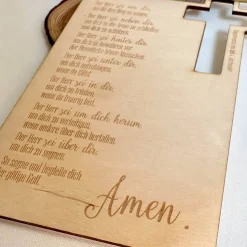 Der Herr sei vor dir,
Der Herr sei neben dir,
um dich in die Arme zu schließen
Der Herr sei hinter dir,
um dich zu bewahren
Der Herr sei unter dir,
um dich aufzufangen,
wenn du fällst.
Der Herr sei in dir,
um dich zu trösten,
wenn du traurig bist.
Der Herr sei um dich herum,
um dich zu verteidigen,
wenn andere über dich herfallen.
Der Herr sei über dir,
um dich zu segnen.
So segne und begleite dich
der gütige Gott.
Amen.